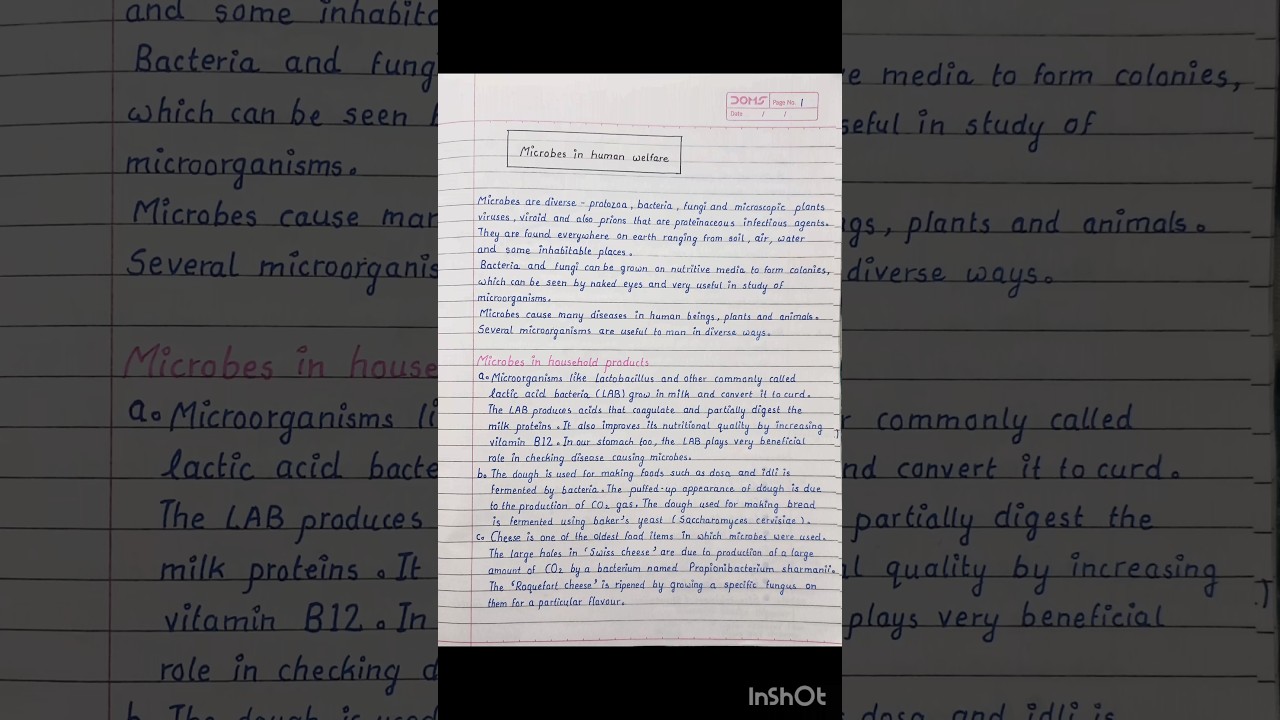 DOMS Page No. 1
Date / /
Microbes in human welfare
Microbes are diverse - protozoa, bacteria, fungi and microscopic plants
viruses, viroid and also prions that are proteinaceous infectious agents.
They are found everywhere on earth ranging from soil, air, water
and some inhabitable places.
Bacteria and fungi can be grown on nutritive media to form colonies,
which can be seen by naked eyes and very useful in study of
microorganisms.
Microbes cause many diseases in human beings, plants and animals.
Several microorganisms are useful to man in diverse ways.
Microbes in household products
a. Microorganisms like Lactobacillus and other commonly called
lactic acid bacteria (LAB) grow in milk and convert it to curd.
The LAB produces acids that coagulate and partially digest the
milk proteins. It also improves its nutritional quality by increasing
vitamin B12. In our stomach too, the LAB plays very beneficial
role in checking disease causing microbes.
b. The dough is used for making foods such as dosa and idli is
fermented by bacteria. The puffed-up appearance of dough is due
to the production of CO₂ gas. The dough used for making bread
is fermented using baker's yeast (Saccharomyces cervisiae).
c. Cheese is one of the oldest food items in which microbes were used.
The large holes in 'Swiss cheese' are due to production of a large
amount of CO₂ by a bacterium named Propionibacterium sharmanii.
The 'Roquefort cheese' is ripened by growing a specific fungus on
them for a particular flavour.
InShOt